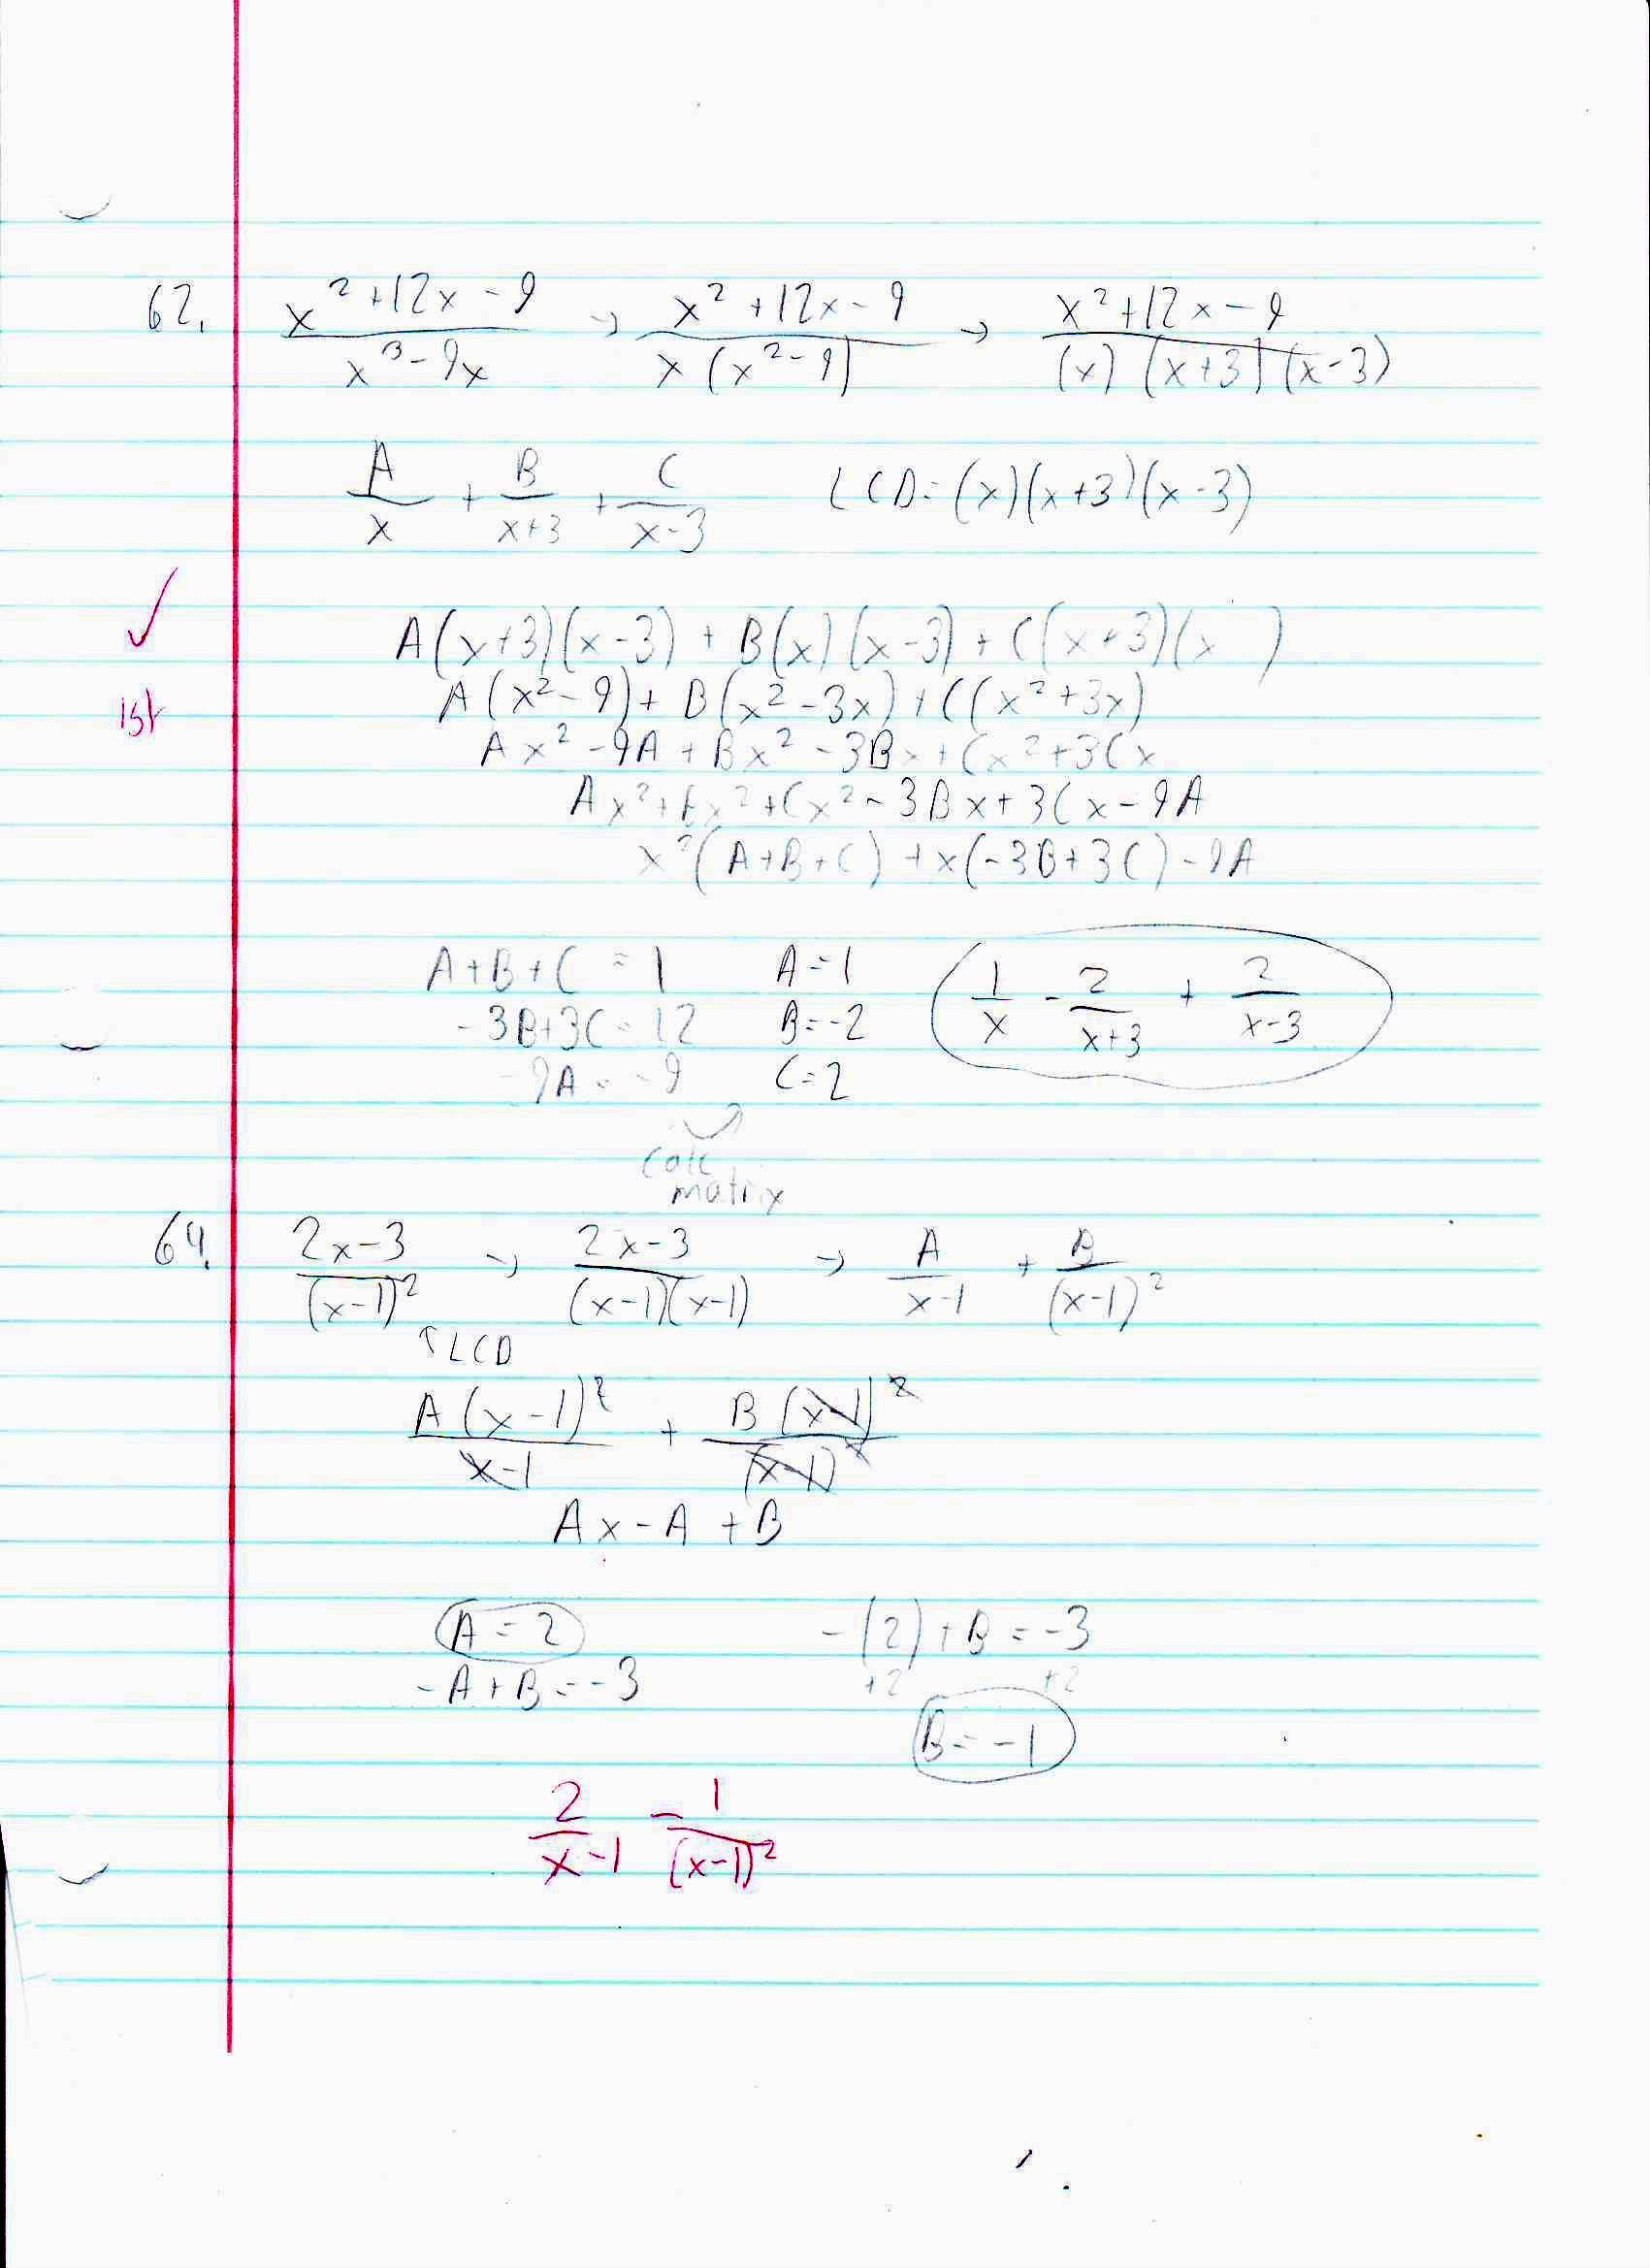 62. (x² + 12x - 9)/(x³ - 9x) → (x² + 12x - 9)/(x(x² - 9)) → (x² + 12x - 9)/((x)(x+3)(x-3))
A/x + B/(x+3) + C/(x-3) LCD = (x)(x+3)(x-3)
✓ A(x+3)(x-3) + B(x)(x-3) + C(x+3)(x )
1st A(x² - 9) + B(x² - 3x) + C(x² + 3x)
Ax² - 9A + Bx² - 3Bx + Cx² + 3Cx
Ax² + Bx² + Cx² - 3Bx + 3Cx - 9A
x²(A+B+C) + x(-3B+3C) - 9A
A+B+C = 1 A = 1 1/x - 2/(x+3) + 2/(x-3)
-3B+3C = 12 B = -2
-9A = -9 C = 2
Calc
matrix
64. (2x-3)/(x-1)² → (2x-3)/((x-1)(x-1)) → A/(x-1) + B/(x-1)²
↑ LCD
A(x-1)²/(x-1) + B(x-1)²/(x-1)²
Ax - A + B
A = 2 -(2) + B = -3
-A + B = -3 +2 +2
B = -1
2/(x-1) - 1/(x-1)²